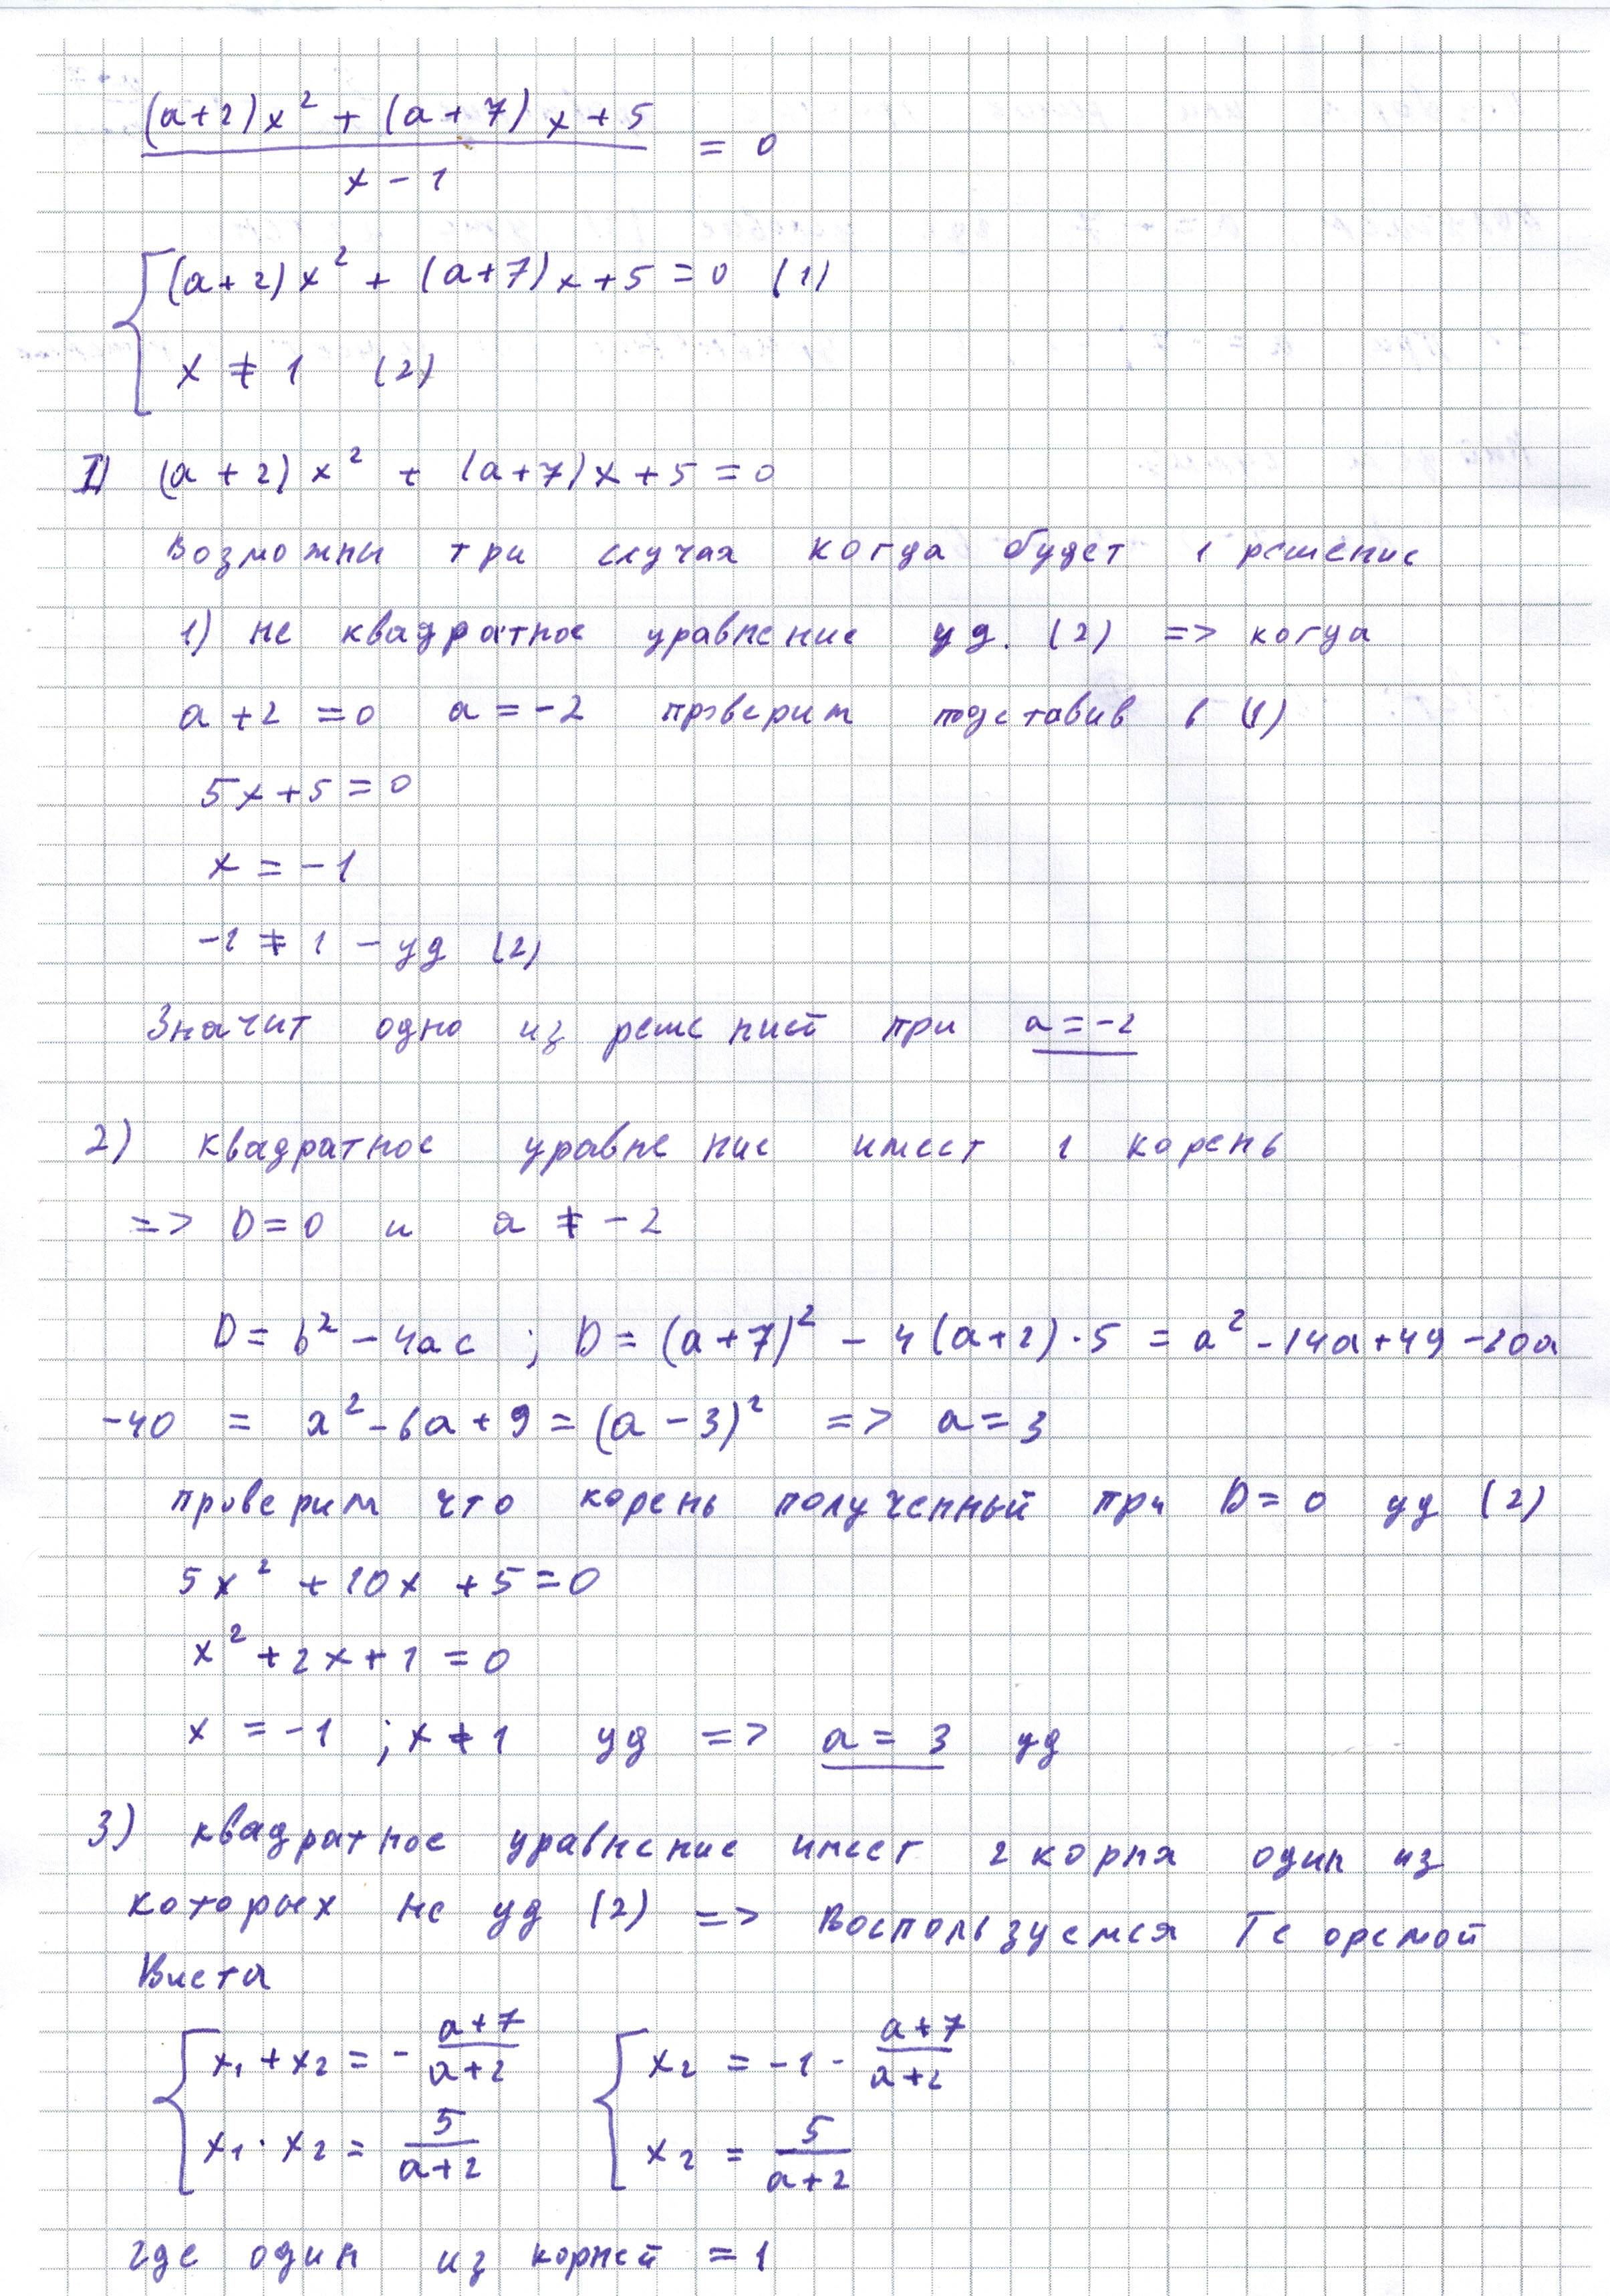 ((a+2)x² + (a+7)x+5)/(x-1) = 0
{ (a+2)x² + (a+7)x+5=0 (1)
x ≠ 1 (2)
I) (a+2)x² + (a+7)x+5=0
Возможны три случая когда будет 1 решение
1) не квадратное уравнение уд. (2) => когда
a+2=0 a=-2 проверим подставив в (1)
5x+5=0
x=-1
-1≠1 - уд (2)
Значит одно из решений при a=-2
2) квадратное уравнение имеет 1 корень
=> D=0 и a ≠ -2
D=b²-4ac ; D=(a+7)² - 4(a+2)·5 = a²-14a+49-20a
-40 = a²-6a+9=(a-3)² => a=3
проверим что корень полученный при D=0 уд (2)
5x²+10x+5=0
x²+2x+1=0
x=-1 ; x≠1 уд => a=3 уд
3) квадратное уравнение имеет 2 корня один из
которых не уд (2) => Воспользуемся Теоремой
Виета
{ x₁+x₂ = - (a+7)/(a+2) { x₂ = -1 - (a+7)/(a+2)
x₁·x₂ = 5/(a+2) x₂ = 5/(a+2)
где один из корней = 1